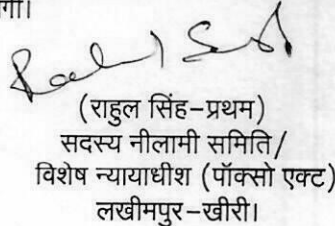 गा।
(राहुल सिंह-प्रथम)
सदस्य नीलामी समिति/
विशेष न्यायाधीश (पॉक्सो एक्ट)
लखीमपुर-खीरी।